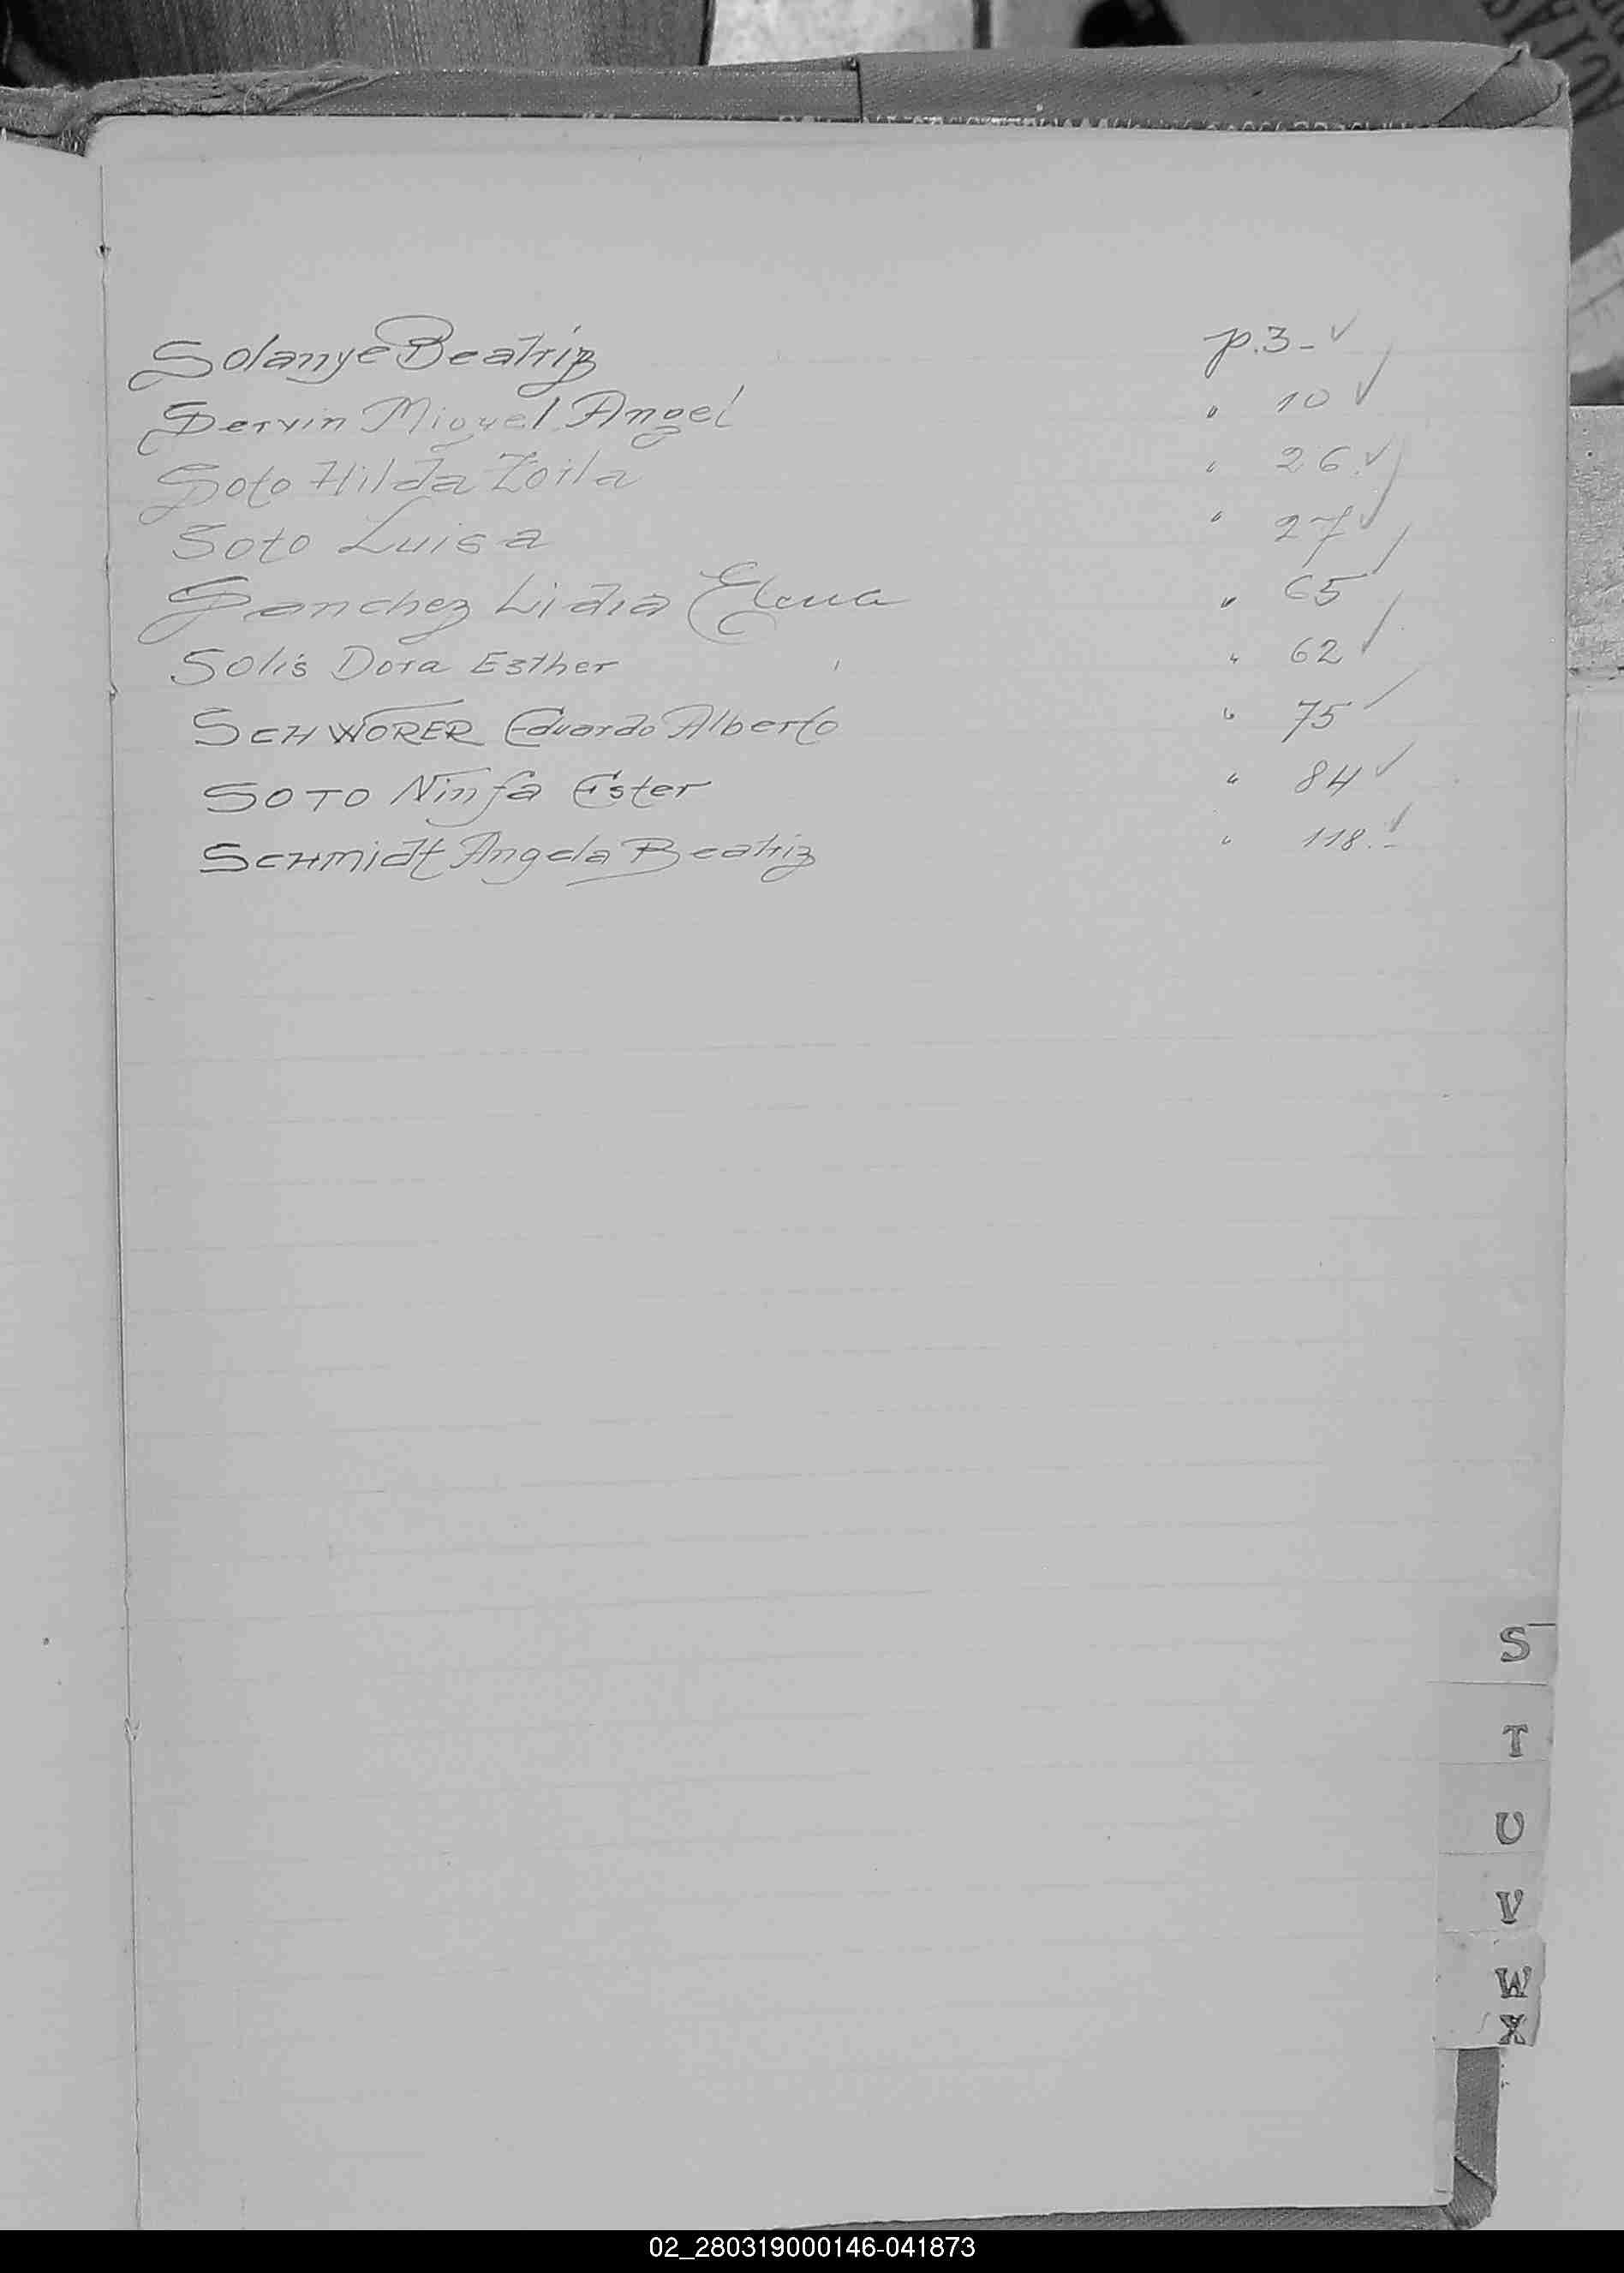 Solanye Beatriz p.3- ✓
Servin Miguel Angel " 10 ✓
Soto Hilda Zoila " 26. ✓
Soto Luisa " 27 ✓
Sanchez Lidia Elena " 65 ✓
Solis Dora Esther " 62 ✓
SCHWORER Eduardo Alberto " 75 ✓
SOTO Ninfa Ester " 84 ✓
SCHmidt Angela Beatriz " 118.- ✓
S
T
U
V
W
X
02_280319000146-041873